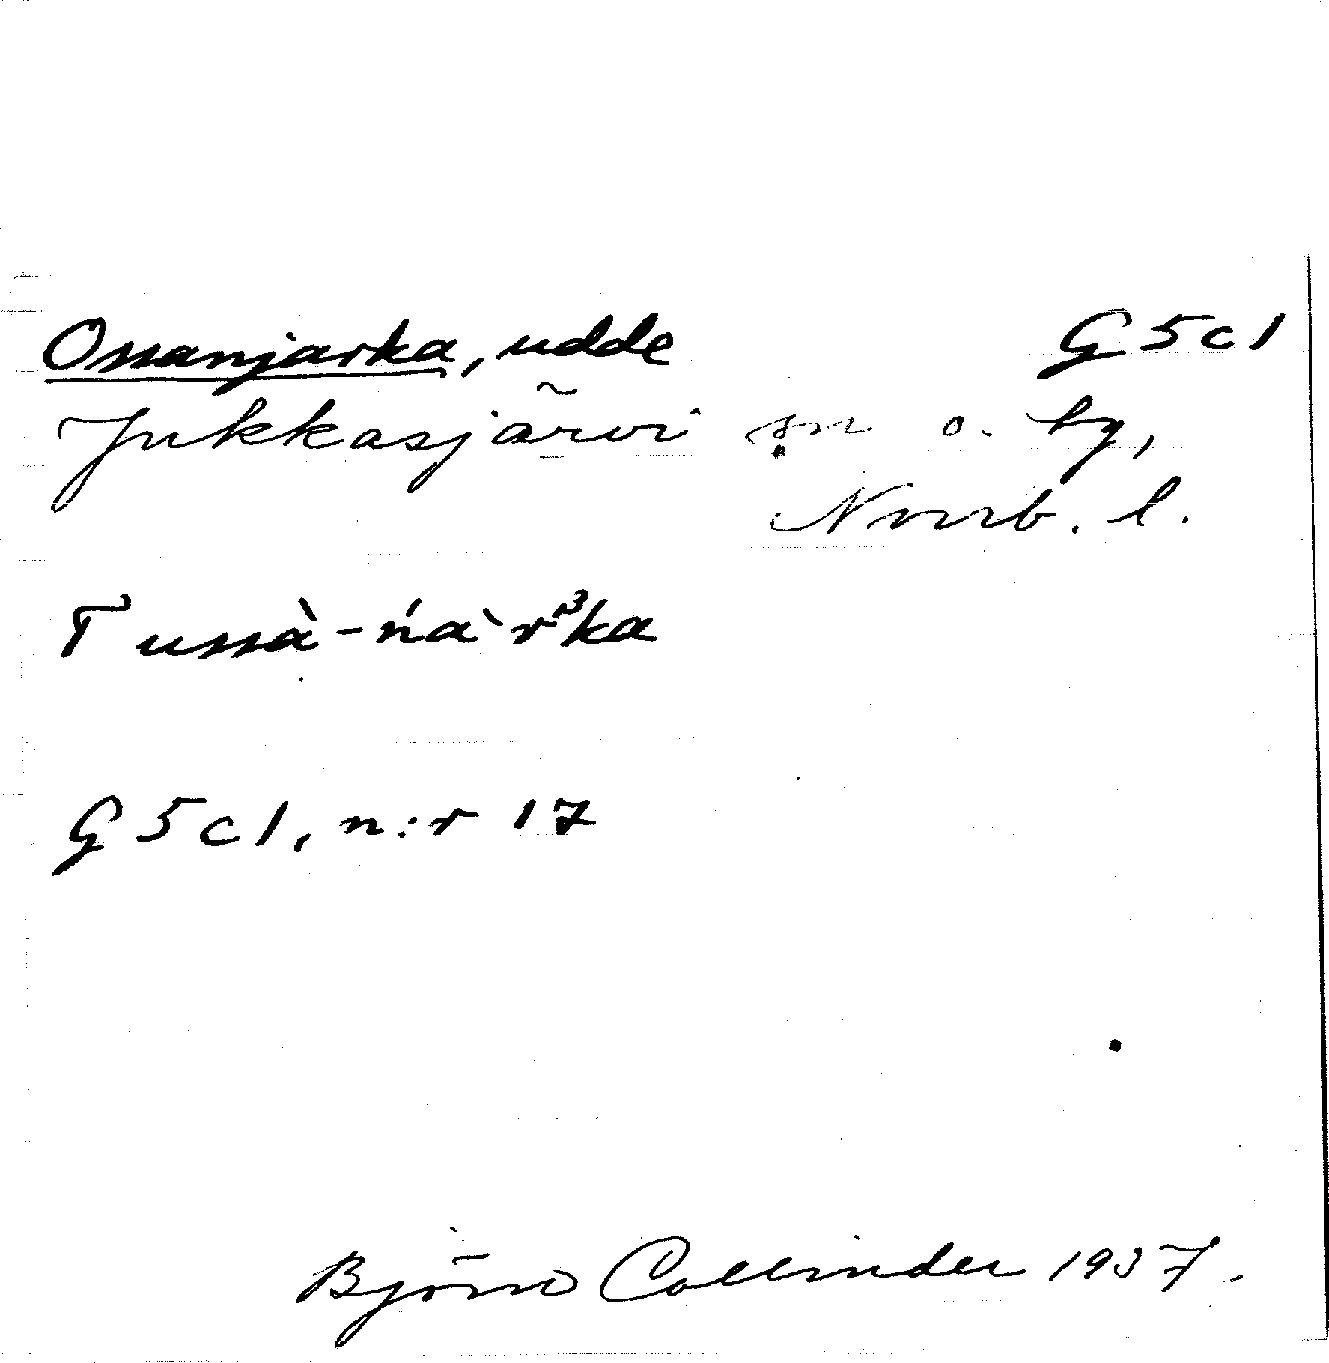 Ossanjarka, udde G5c1
Jukkasjärvi sn o. by,
Norrb. l.
T ussà-ńàr³ka
G5c1, n:r 17
Björn Collinder 1937.